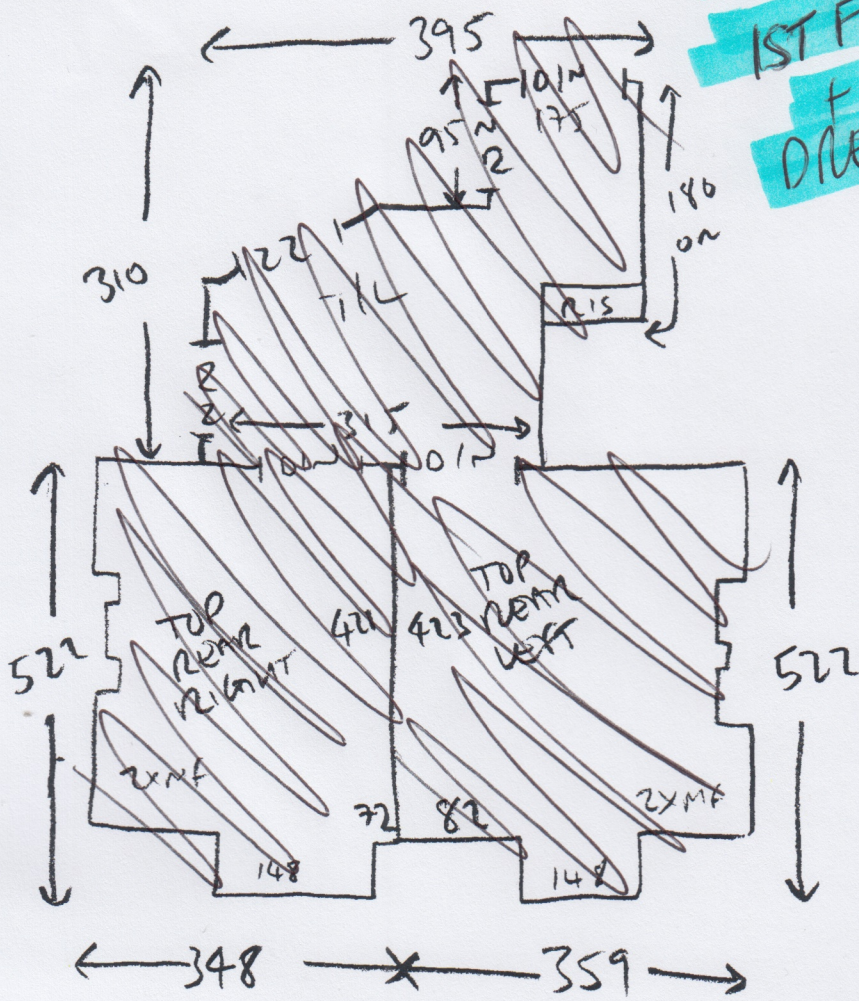 395
1ST F
+
DRE
10 IN
175
95
IN
180
ON
310
122
T/L
RIS
315
10 IN
TOP
REAR
RIGHT
421
423
TOP
REAR
LEFT
522
522
2XMF
72
82
2XMF
148
148
348
359